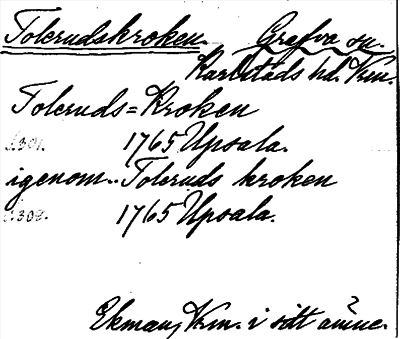 Tolerudskroken. Grafva sn.
Karlstads hd. Vrm.
Toleruds=Kroken
s.301. 1765 Upsala.
igenom.. Toleruds kroken
s.302. 1765 Upsala.
Ekman, Vrm. i sitt ämne.